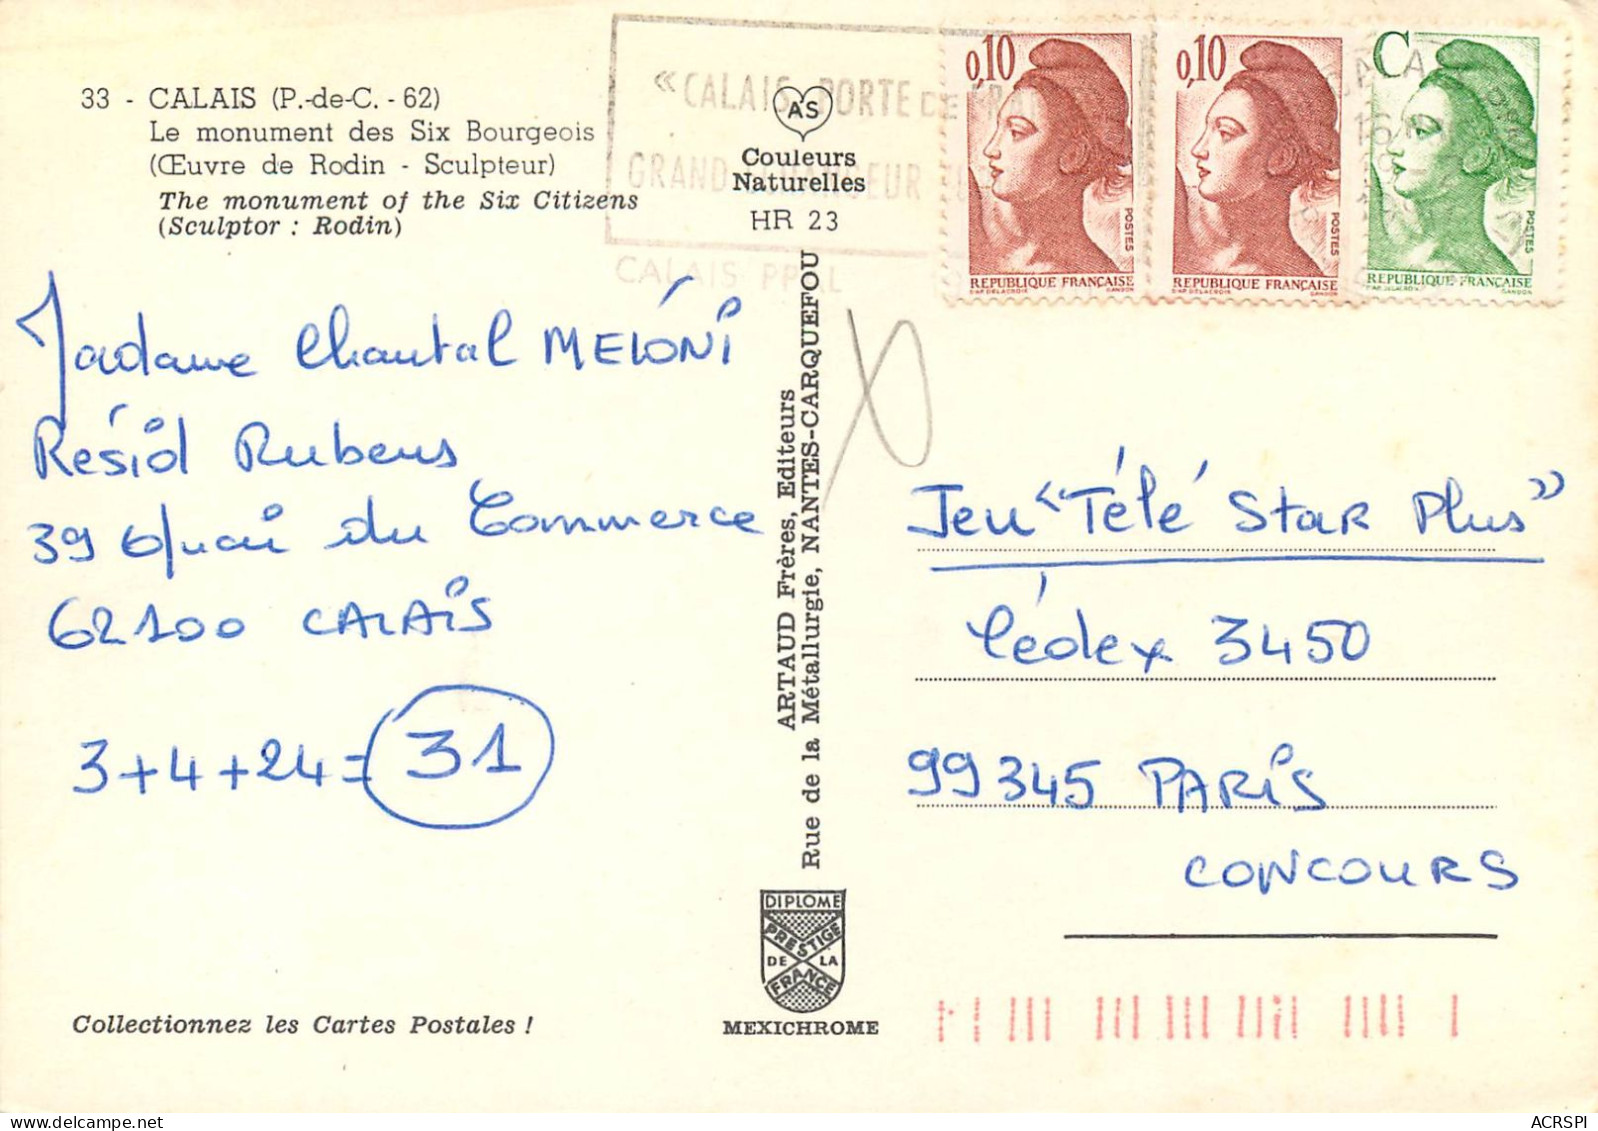 33 - CALAIS (P.-de-C. - 62)
Le monument des Six Bourgeois
(Œuvre de Rodin - Sculpteur)
The monument of the Six Citizens
(Sculptor : Rodin)
AS
Couleurs
Naturelles
HR 23
« CALAIS PORTE DE
GRAND
CALAIS PPAL
0,10
POSTES
REPUBLIQUE FRANÇAISE
D'AP. DELACROIX GANDON
0,10
POSTES
REPUBLIQUE FRANÇAISE
D'AP. DELACROIX GANDON
C
POSTES
REPUBLIQUE FRANÇAISE
D'AP. DELACROIX GANDON
Madame Chantal MELONi
Résid Rubens
39 Quai du Commerce
62100 CALAiS
3+4+24= 31
ARTAUD Frères, Editeurs
Rue de la Métallurgie, NANTES-CARQUEFOU
Jeu "Télé Star Plus"
Cédex 3450
99345 PARiS
CONCOURS
DIPLOME
PRESTIGE
DE LA
FRANCE
MEXICHROME
Collectionnez les Cartes Postales !
ACRSPI